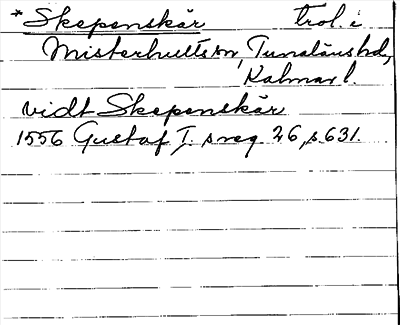 *Skepenskär trol. i
Misterhults sn, Tunaläns hd,
Kalmar l.
vidt Skepenskär
1556 Gustaf I. s reg 26, s. 631.